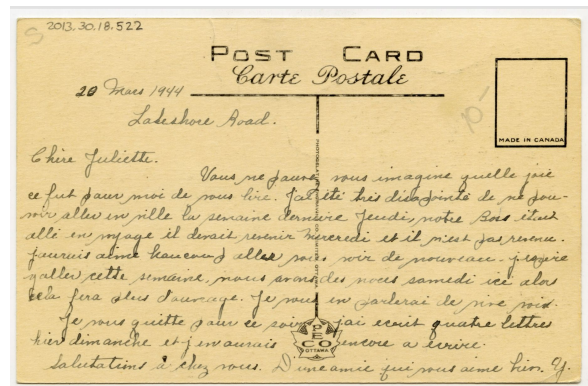 2013.30.18.522
POST CARD
Carte Postale
20 Mars 1944
Lakeshore Road.
MADE IN CANADA
Chère Juliette.
Vous ne pauvez vous imagine quelle joie
ce fut pour moi de vous lire. J'ai été très disapointé de ne pou-
voir aller en ville la semaine dernière Jeudi, notre Boss était
allé en voyage il devait revenir Mercredi et il n'est pas revenu.
J'aurais aimé beaucoup aller vous voir de nouveau. J'espère
y aller cette semaine, nous avons des noces samedi ici alors
cela fera plus d'ouvrage. Je vous en parlerai de vive voix.
Je vous quitte pour ce soir j'ai écrit quatre lettres
hier dimanche et j'en aurais encore a écrire.
Salutations à chez vous. D'une amie qui vous aime bien. Y.
PECO
OTTAWA